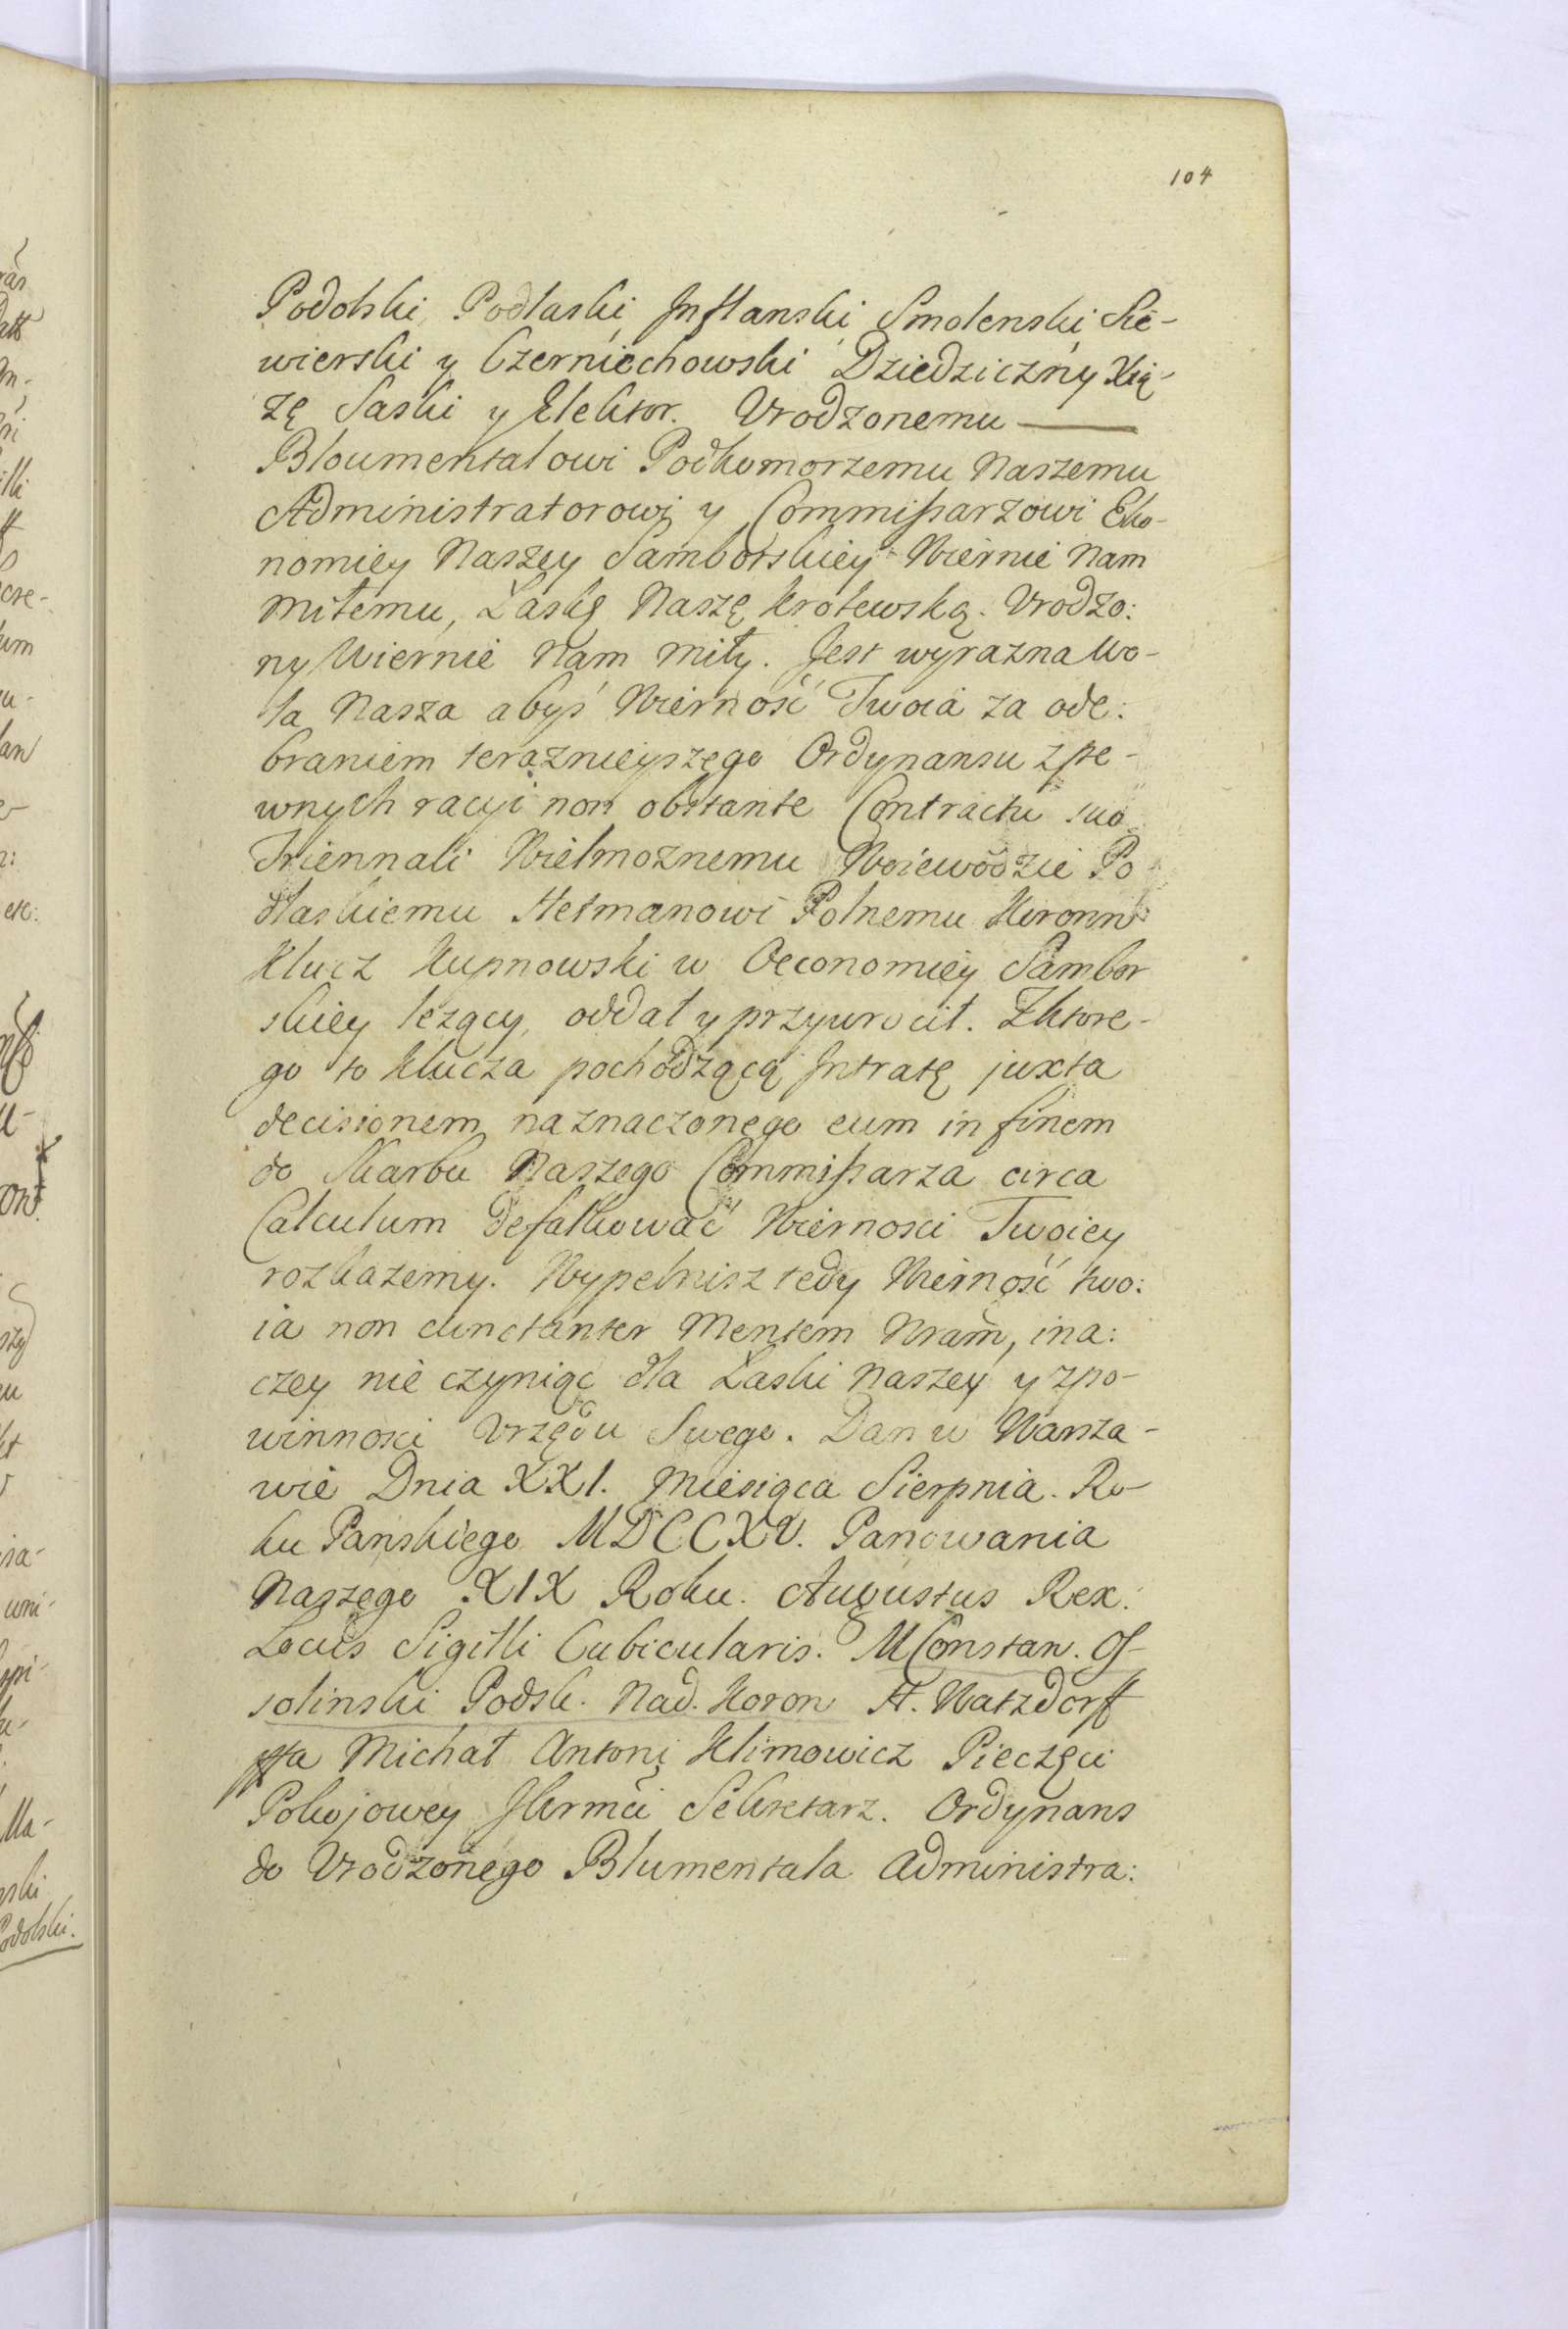 104
Podolski, Podlaski, Inflanski, Smolenski, Sie-
wierski y Czerniechowski Dziedziczny Xią-
zę Saski y Elektor. Vrodzonemu ——
Bloumentalowi Podkomorzemu Naszemu
Administratorowi y Commissarzowi Eko-
nomiey Naszey Samborskiey Wiernie Nam
miłemu, Łaskę Naszę Krolewską. Vrodzo:
ny Wiernie Nam miły. Jest wyrazna Wo-
la Nasza abyś Wierność Twoia za ode:
braniem teraznieyszego Ordynansu z pe-
wnych racyi non obstante Contractu suo
Triennali Wielmoznemu Woiewodzie Po
dlaskiemu Hetmanowi Polnemu Koronn:
Klucz Kupnowski w Oeconomiey Sambor
skiey lezący, oddał y przywrocił. Z ktore-
go to Klucza pochodzącą Intratę juxta
decisionem naznaczonego eum in finem
do Skarbu Naszego Commissarza circa
Calculum defalkować Wiernosci Twoiey
rozkazemy. Wypelnisz tedy Wierność two:
ia non cunctanter Mentem Nram, ina:
czey nie czyniąc dla Łaski Naszey y z po-
winnosci Vrzędu Swego. Dan w Warsza-
wie Dnia XXI. Miesiąca Sierpnia. Ro-
ku Panskiego MDCCXV. Panowania
Naszego XIX Roku. Augustus Rex.
Locus Sigilli Cubicularis. M Constan. Os-
solinski Podsk. Nad. Koron H. Watzdorff
Michał Antoni Klimowicz Pieczęci
Pokojowey JKrmci Sekretarz. Ordynans
do Vrodzonego Blumentala Administra: